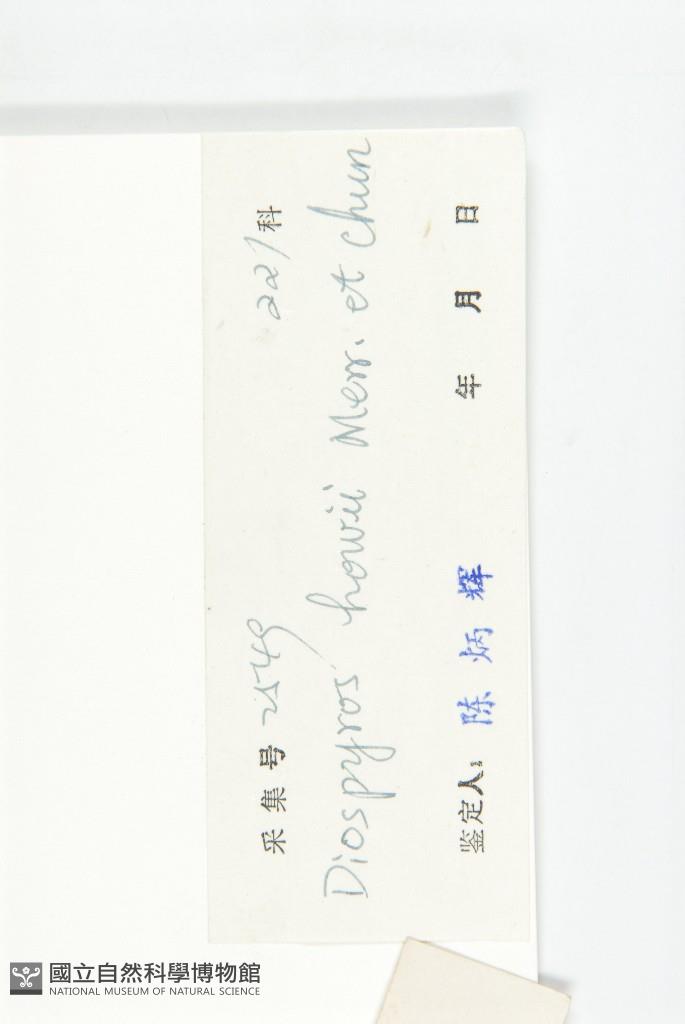 采集号 2549 221科
Diospyros howii Merr. et Chun
鉴定人: 陈炳辉 年 月 日
國立自然科學博物館
NATIONAL MUSEUM OF NATURAL SCIENCE